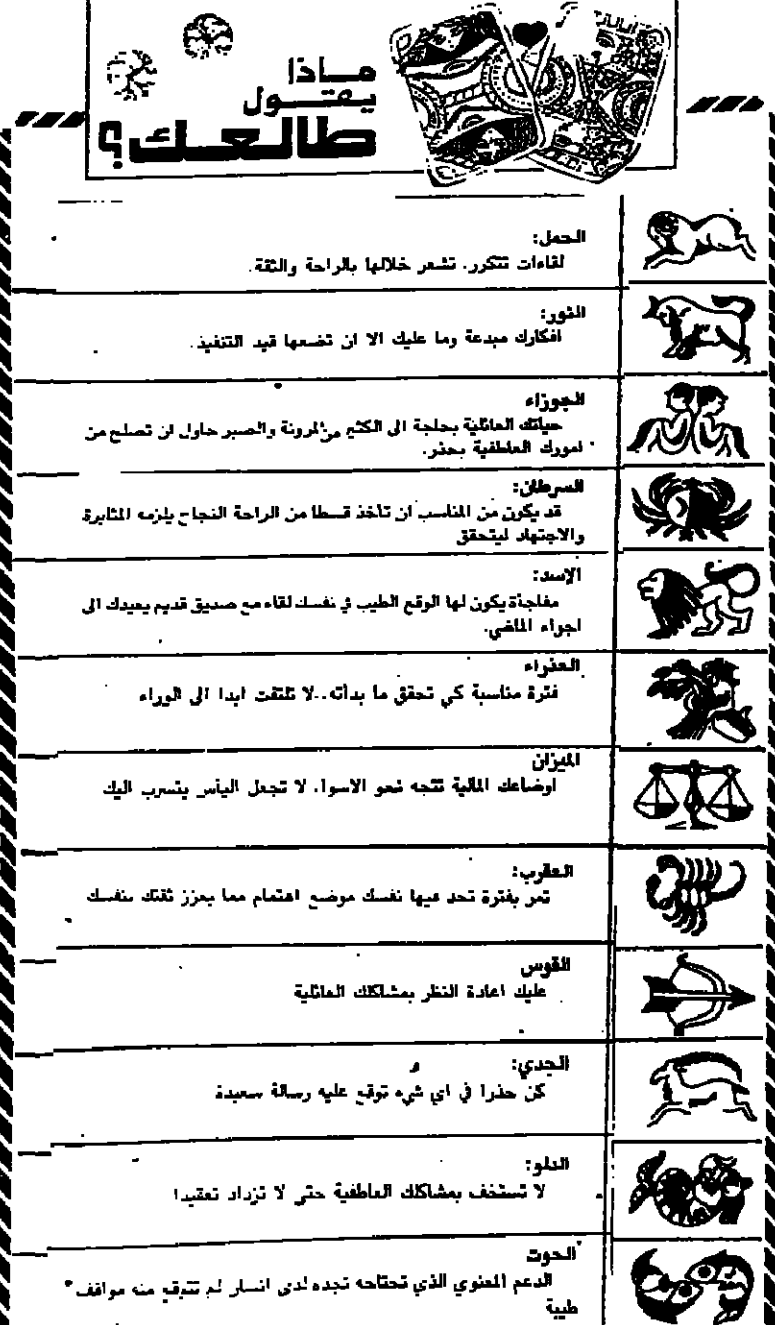 ماذا
يقول
طالعك؟
الحمل:
لقاءات تتكرر. تشعر خلالها بالراحة والثقة.
الثور:
افكارك مبدعة وما عليك الا ان تضعها قيد التنفيذ.
الجوزاء
حياتك العائلية بحاجة الى الكثير من المرونة والصبر حاول ان تصلح من
امورك العاطفية بحذر.
السرطان:
قد يكون من المناسب ان تأخذ قسطا من الراحة النجاح يلزمه المثابرة
والاجتهاد ليتحقق
الإسد:
مفاجأة يكون لها الوقع الطيب في نفسك لقاء مع صديق قديم يعيدك الى
اجواء الماضي.
العذراء
فترة مناسبة كي تحقق ما بدأته..لا تلتفت ابدا الى الوراء
الميزان
اوضاعك المالية تتجه نحو الاسوا. لا تجعل اليأس يتسرب اليك
العقرب:
تمر بفترة تجد فيها نفسك موضع اهتمام مما يعزز ثقتك بنفسك
القوس
عليك اعادة النظر بمشاكلك العائلية
الجدي:
كن حذرا في اي شيء توقع عليه رسالة سعيدة
الدلو:
لا تستخف بمشاكلك العاطفية حتى لا تزداد تعقيدا
الحوت
الدعم المعنوي الذي تحتاجه تجده لدى انسان لم تتوقع منه مواقف
طيبة